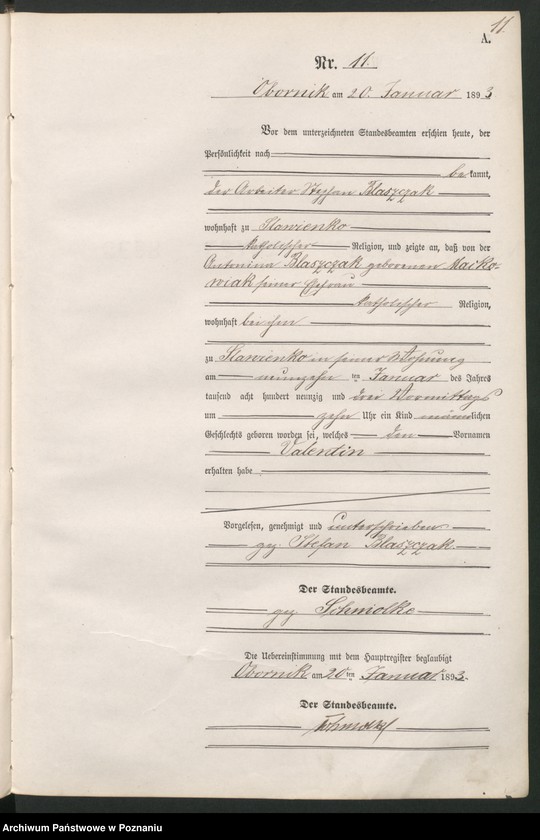 11.
A.
Nr. 11.
Obornik am 20. Januar 1893
Vor dem unterzeichneten Standesbeamten erschien heute, der
Persönlichkeit nach
bekannt,
der Arbeiter Stephan Blaszczak
wohnhaft zu Slawienko
katholischer Religion, und zeigte an, daß von der
Antonina Blaszczak geborenen Maćko-
wiak seiner Ehefrau
katholischer Religion,
wohnhaft bei ihm
zu Slawienko in seiner Wohnung
am neunzehn ten Januar des Jahres
tausend acht hundert neunzig und drei Vormittags
um zehn Uhr ein Kind männlichen
Geschlechts geboren worden sei, welches den Vornamen
Valentin
erhalten habe
Vorgelesen, genehmigt und unterschrieben
gez. Stefan Blaszczak
Der Standesbeamte.
gez. Schmolke
Die Uebereinstimmung mit dem Hauptregister beglaubigt
Obornik am 20 ten Januar 1893.
Der Standesbeamte.
Schmolke
Archiwum Państwowe w Poznaniu